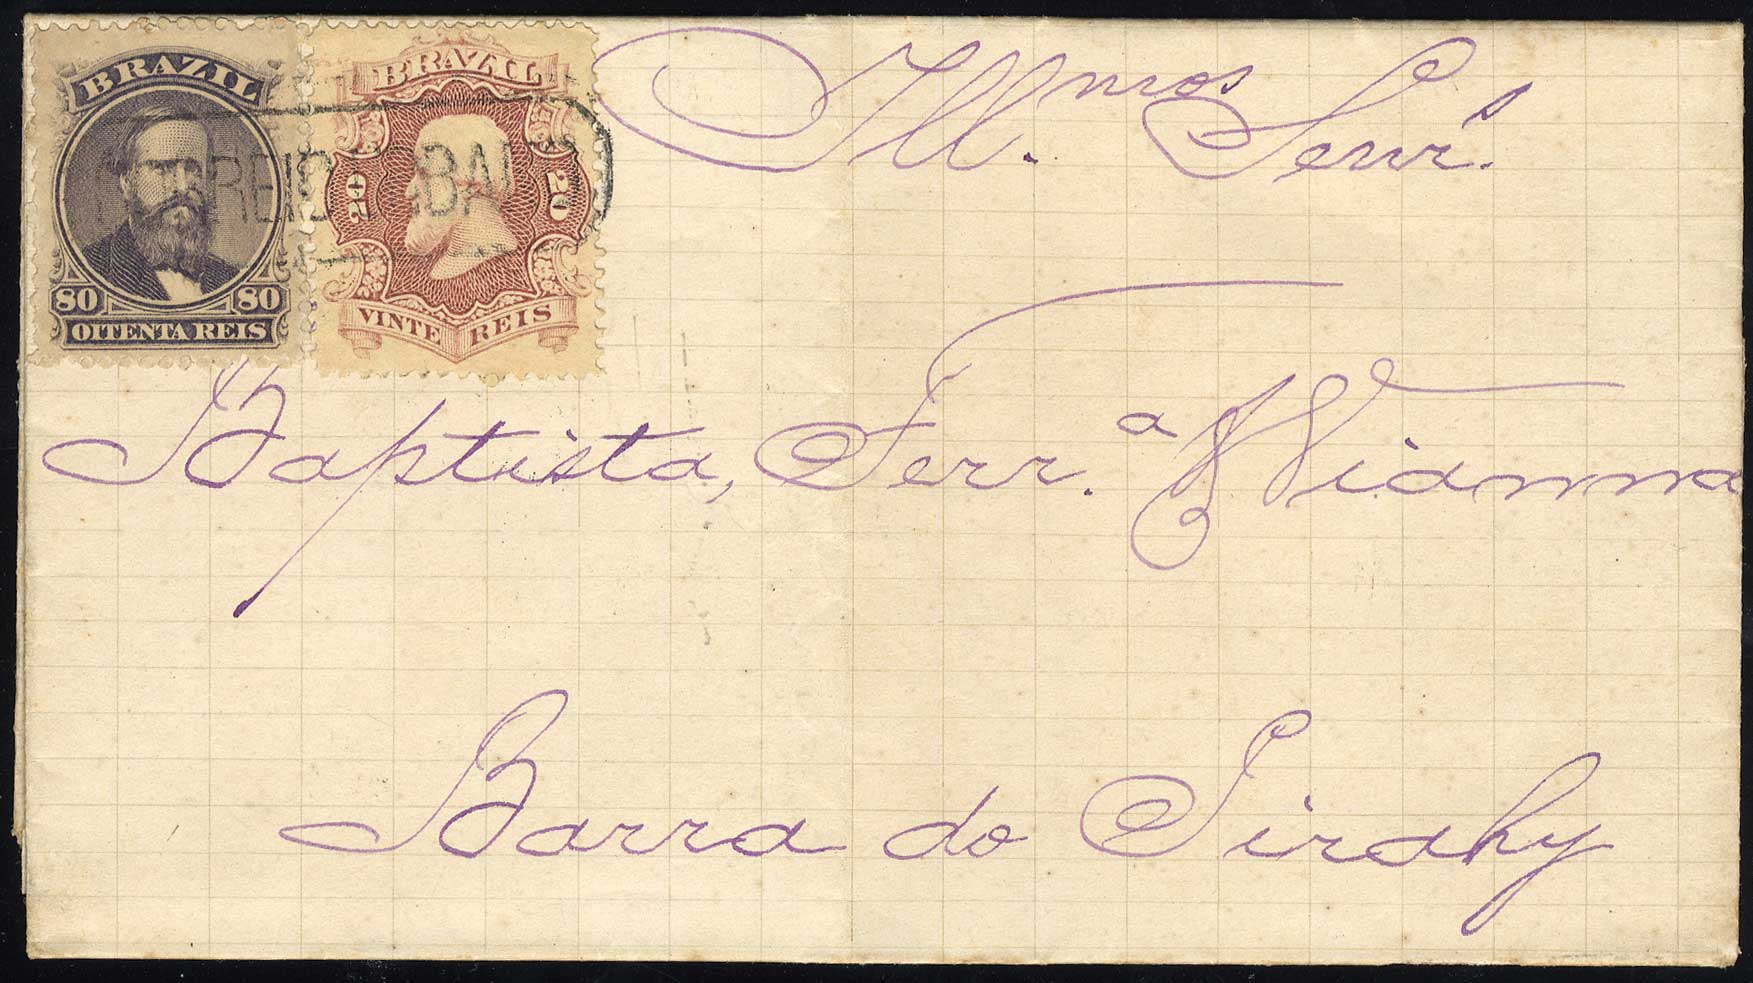 BRAZIL
80 80
OITENTA REIS
BRAZIL
20 20
VINTE REIS
Illmos Senrs.
Baptista, Ferr.a Vianna
Barra do Pirahy